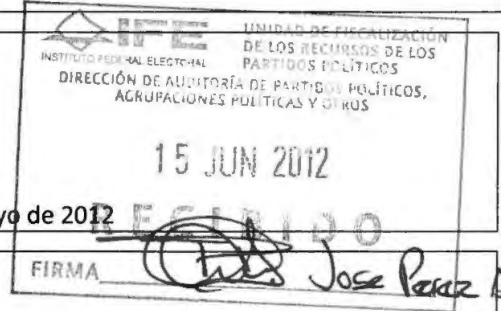 IFE
INSTITUTO FEDERAL ELECTORAL
UNIDAD DE FISCALIZACIÓN
DE LOS RECURSOS DE LOS
PARTIDOS POLÍTICOS
DIRECCIÓN DE AUDITORÍA DE PARTIDOS POLÍTICOS,
AGRUPACIONES POLÍTICAS Y OTROS
15 JUN 2012
yo de 2012
RECIBIDO
FIRMA Jose Perez